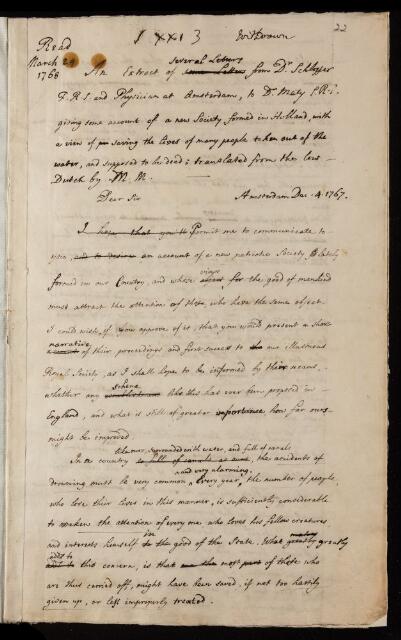 22
[XXI] Withdrawn
Read
March 24
1768
several Letters
An Extract of some Letters from Dr. Schlosser
F.R.S. and Physician at Amsterdam, to Dr. Maty S.R.S.
giving some account of a new Society formed in Holland, with
a view of saving the lives of many people taken out of the
water, and supposed to be dead; translated from the low
Dutch by M. M.
Dear Sir Amsterdam Dec. 4. 1767.
Permit me to communicate to
you, and to desire an account of a new patriotic Society lately
formed in our Country, and whose views for the good of mankind
must attract the attention of those, who have the same object.
I could wish, if you approve of it, that you would present a short
narrative
of their proceedings and first success to our illustrious
Royal Society, as I shall hope to be informed by their means,
scheme
whether any like this has ever been proposed in
England, and what is still of greater importance how far ours
might be improved.
like ours, surrounded with water, and full of canals
In a country so full of canals as ours, the accidents of
and very alarming.
drowning must be very common, Every year, the number of people,
who lose their lives in this manner, is sufficiently considerable
to waken the attention of every one who loves his fellow creatures
in
and interests himself to the good of the State. What greatly
adds to
this concern, is that the most part of those who
are thus carried off, might have been saved, if not too hastily
given up, or less improperly treated.